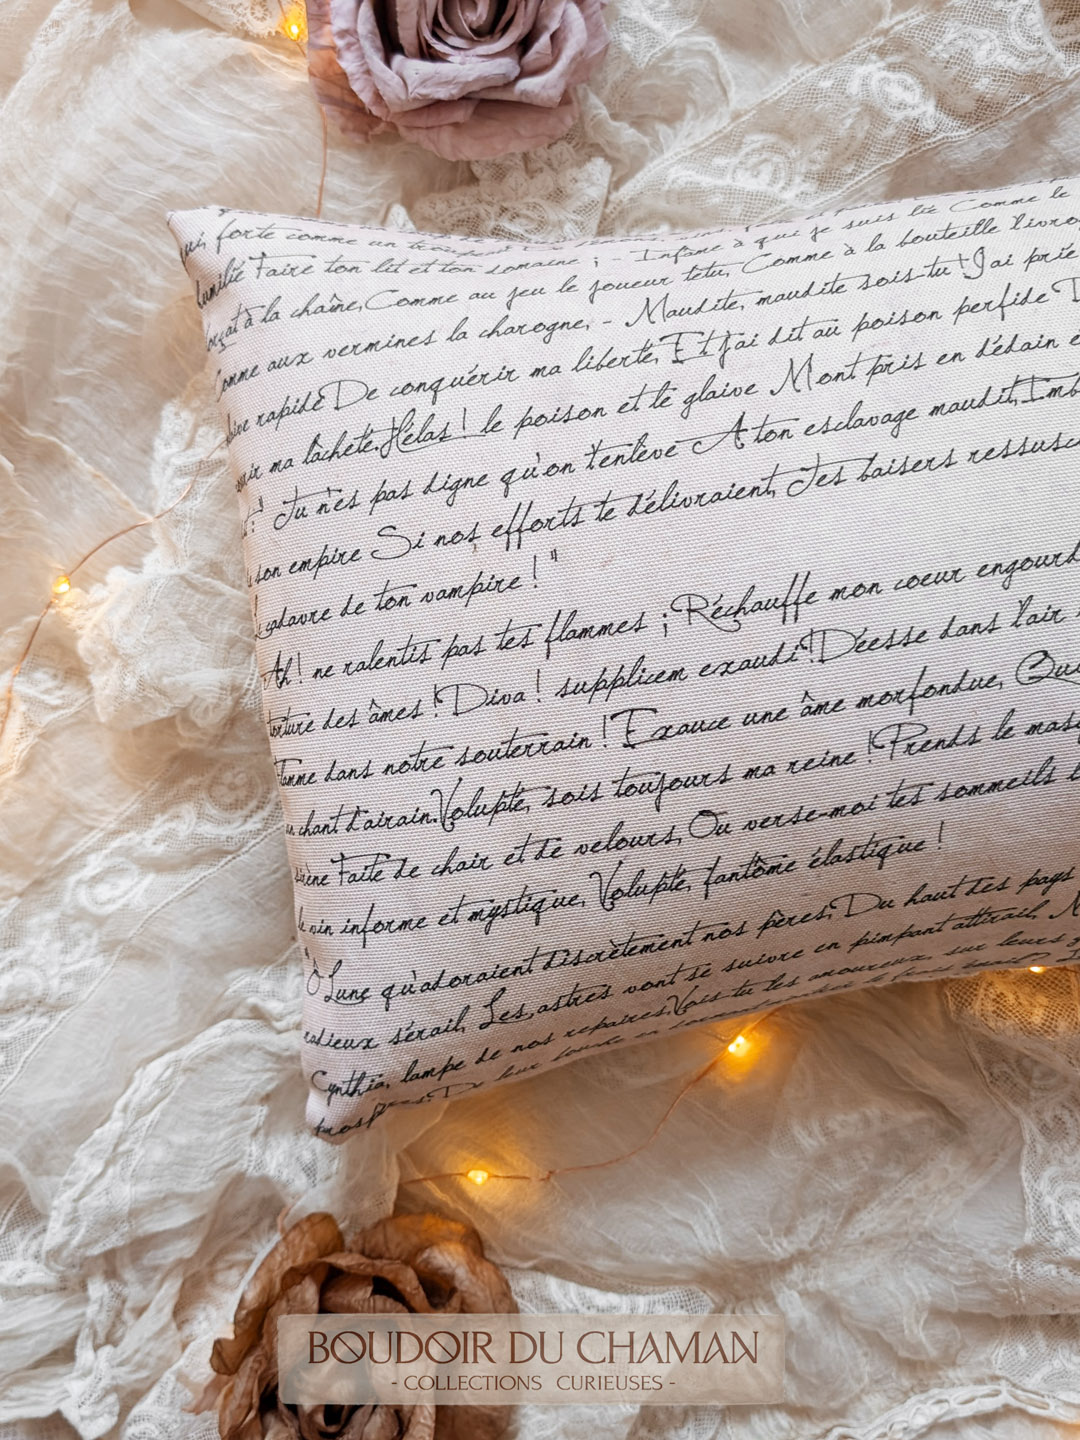 forte comme un troupeau
humilié Faire ton lit et ton domaine ; - Infâme à qui je suis lié Comme le
forçat à la chaîne, Comme au jeu le joueur têtu, Comme à la bouteille l'ivro
Comme aux vermines la charogne, - Maudite, maudite sois-tu ! J'ai prié
aive rapide De conquérir ma liberté, Et j'ai dit au poison perfide
ma lâcheté. Hélas ! le poison et le glaive M'ont pris en dédain e
: " Tu n'es pas digne qu'on t'enlève A ton esclavage maudit, Imb
son empire Si nos efforts te délivraient, Tes baisers ressusc
cadavre de ton vampire ! "
Ah ! ne ralentis pas tes flammes ; Réchauffe mon coeur engourd
torture des âmes ! Diva ! supplicem exaudi ! Déesse dans l'air
flamme dans notre souterrain ! Exauce une âme morfondue, Qui
un chant d'airain. Volupté, sois toujours ma reine ! Prends le mas
sirène Faite de chair et de velours, Ou verse-moi tes sommeils
le vin informe et mystique, Volupté, fantôme élastique !
" Ô Lune qu'adoraient discrètement nos pères, Du haut des pays
radieux sérail, Les astres vont se suivre en pimpant attirail,
Cynthia, lampe de nos repaires, Vois-tu les amoureux sur leurs
De leur bouche en
BOUDOIR DU CHAMAN
- COLLECTIONS CURIEUSES -